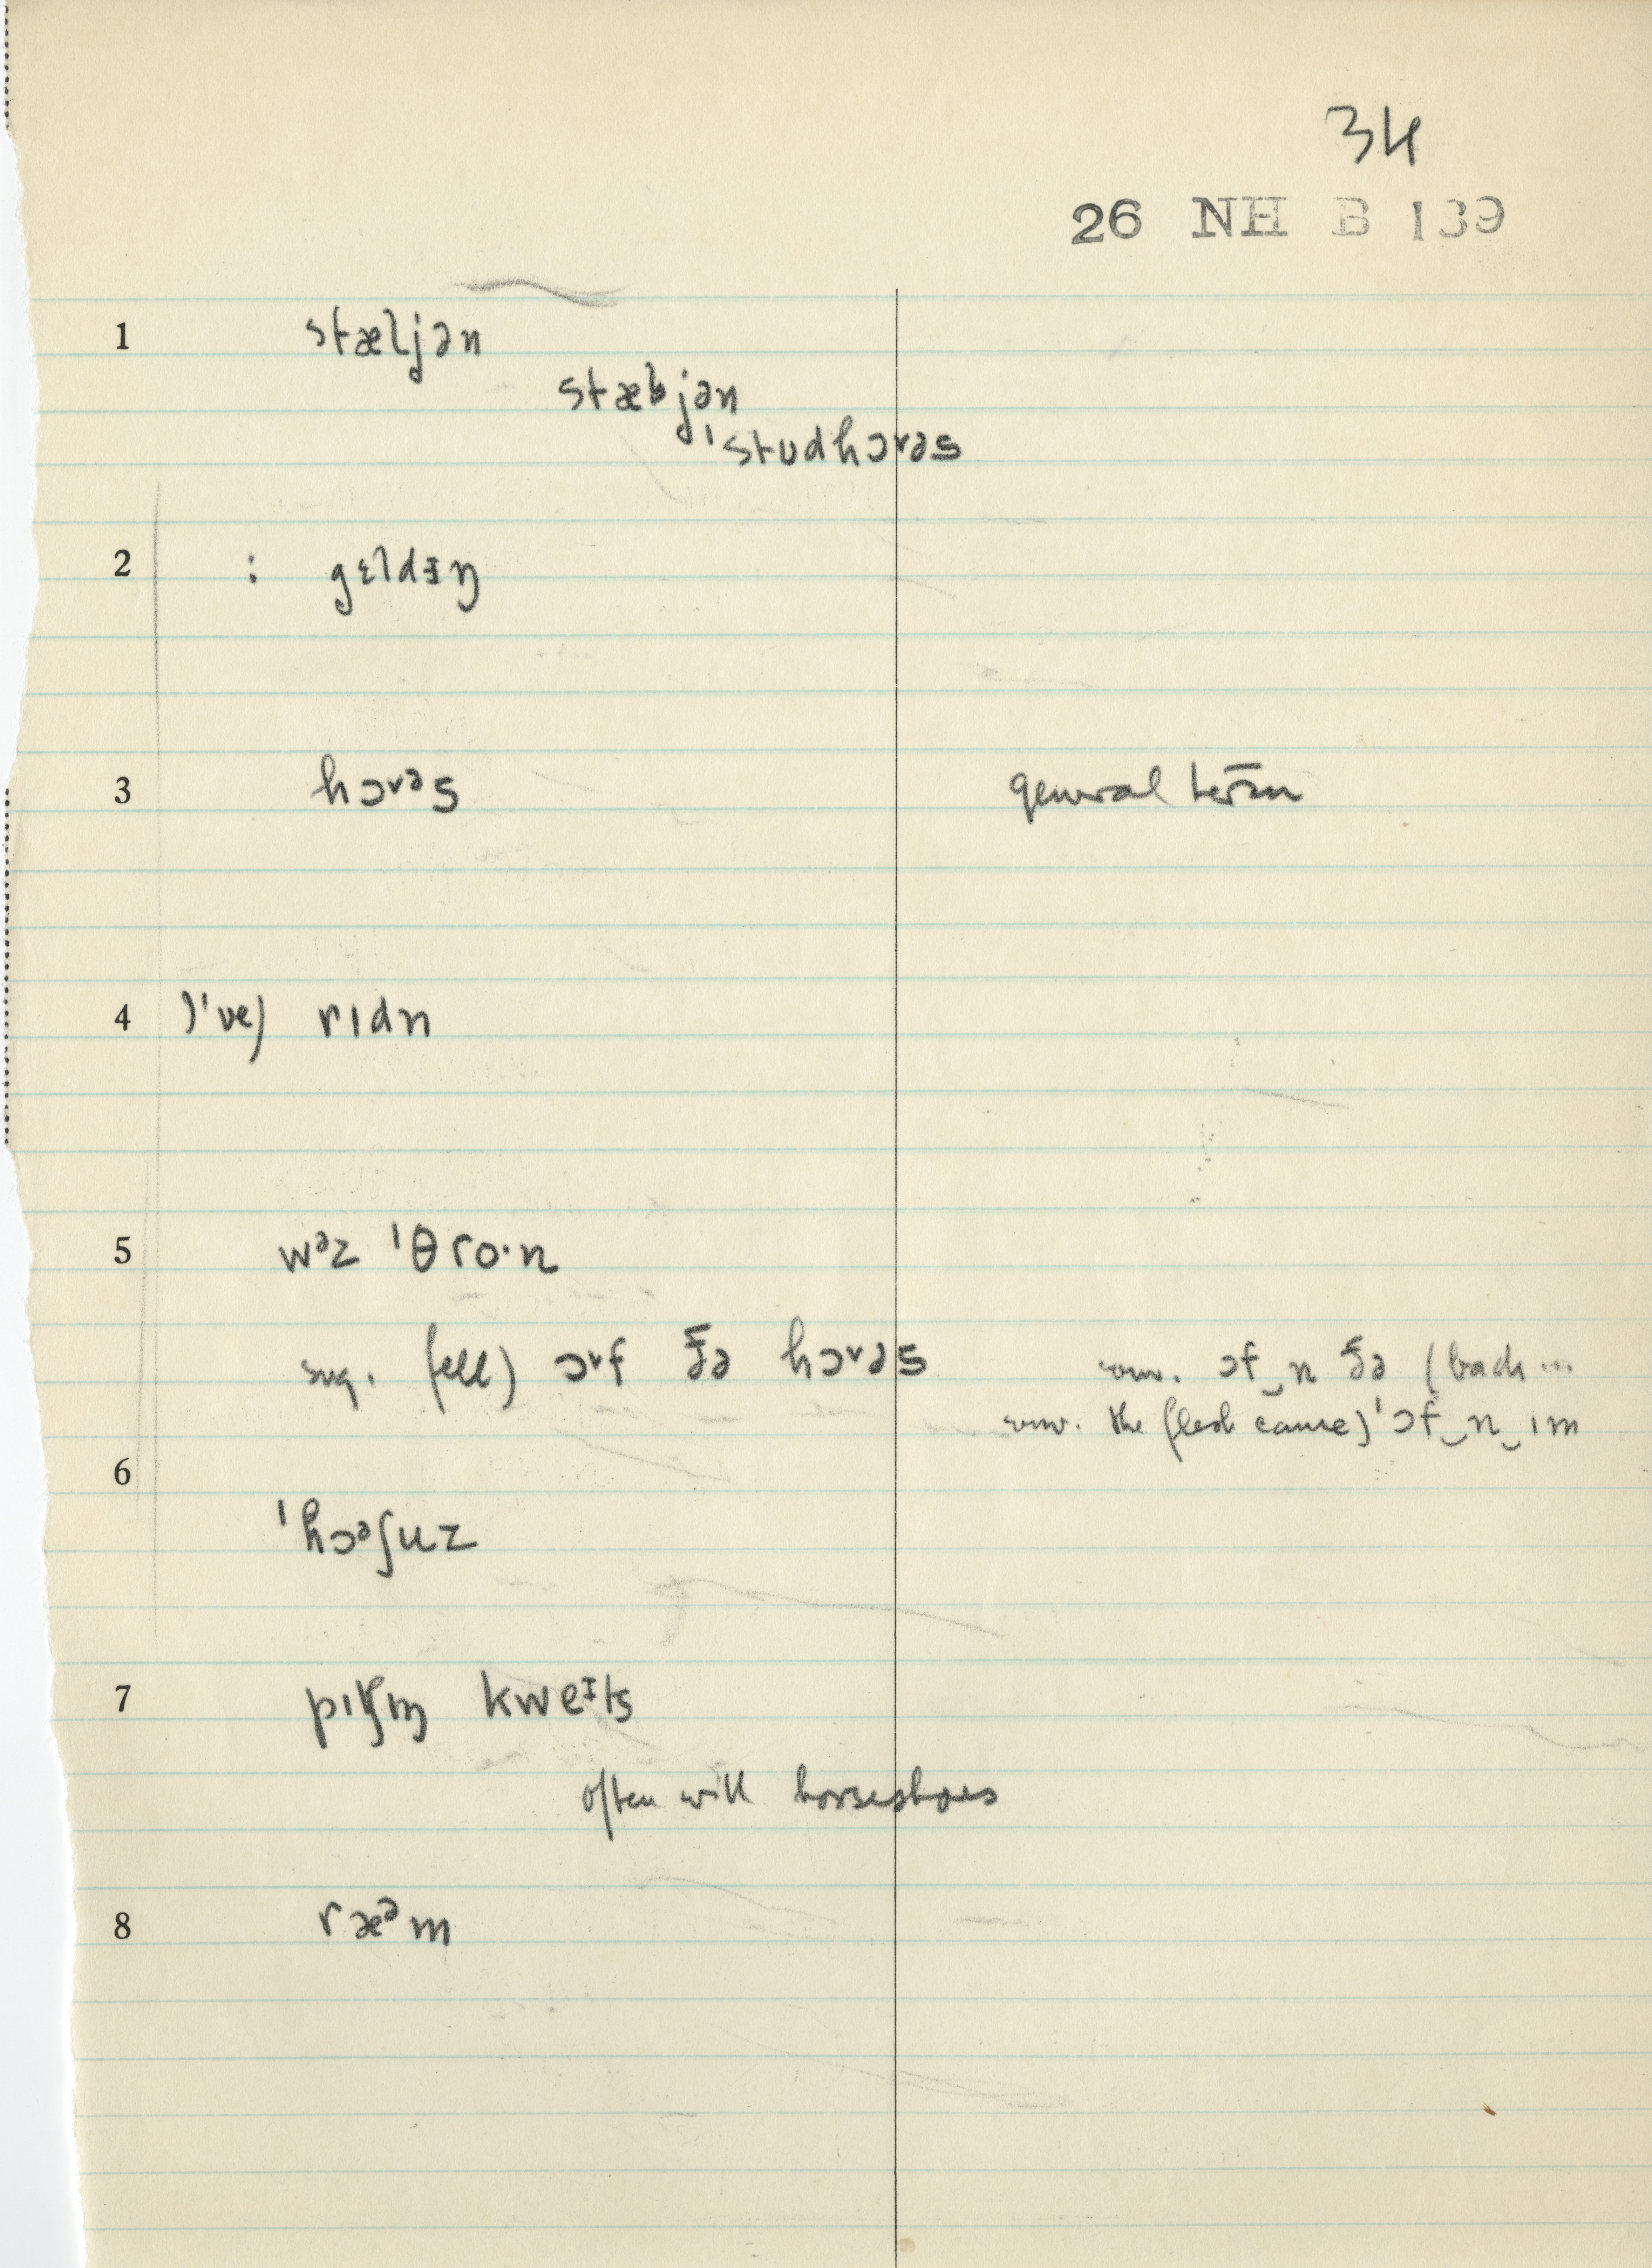 34
26 NH B 139
1 stæljən
stæbjən
ˈstʊdhɔɤəs
2 : gɛldɪŋ
3 hɔɤəs general term
4 I've) rɪdn
5 wəz ˈθro·n
sug. fell) ɔɤf ðə hɔɤəs conv. ɔf‿n ðə (back ...
conv. the flesh came) ˈɔf‿n‿ɪm
6
ˈhɔəʃuz
7 pɪtʃɪŋ kweɪts
often with horseshoes
8 ræəm